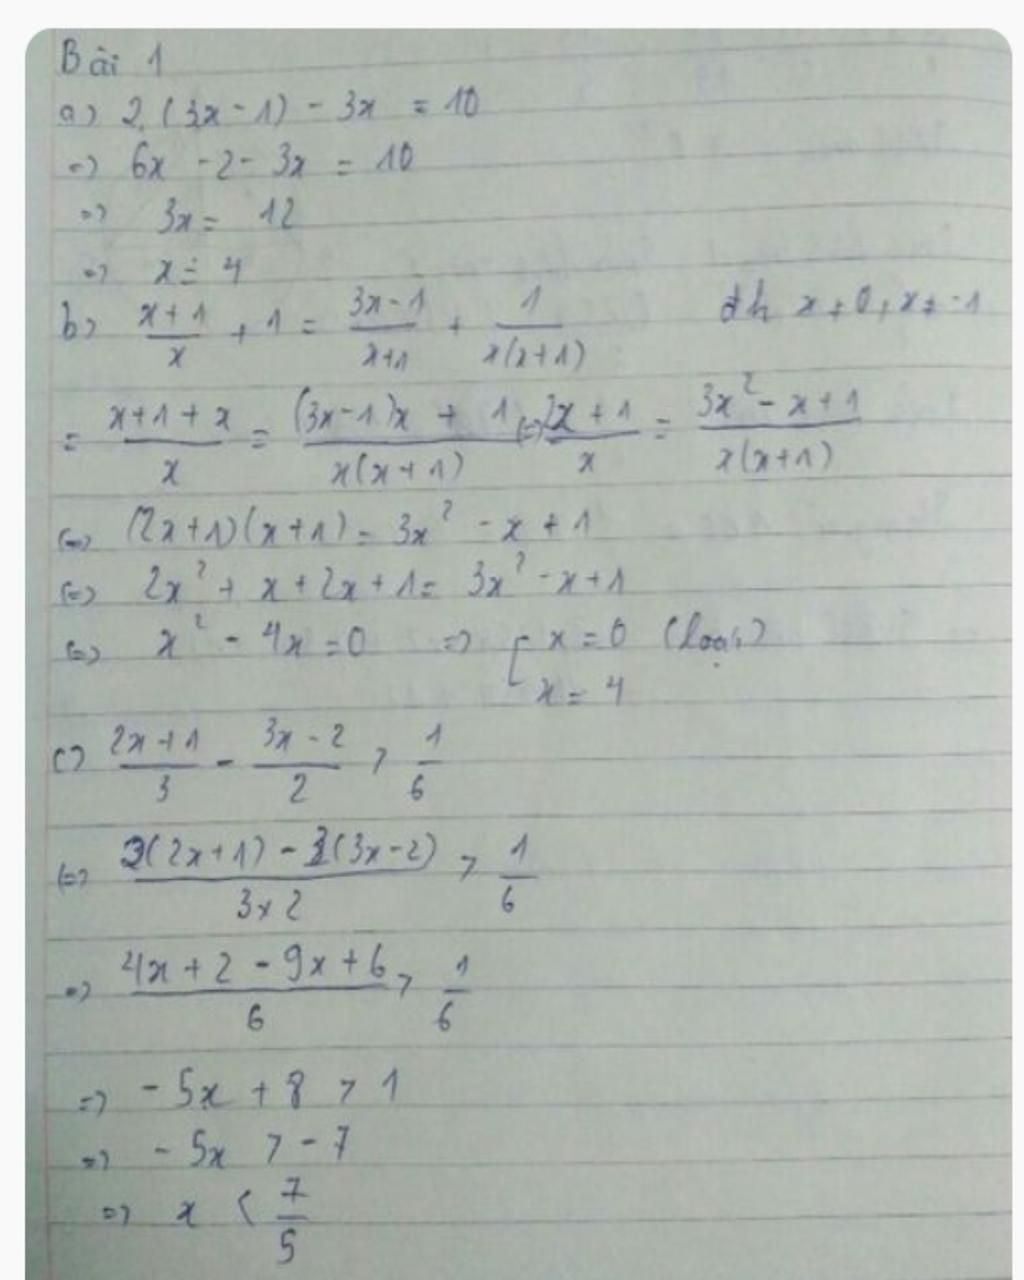 Bài 1
a) 2.(3x - 1) - 3x = 10
=> 6x - 2 - 3x = 10
=> 3x = 12
=> x = 4
b) \frac{x+1}{x} + 1 = \frac{3x-1}{x+1} + \frac{1}{x(x+1)} đk x ≠ 0, x ≠ -1
= \frac{x+1+x}{x} = \frac{(3x-1)x + 1}{x(x+1)} (=) \frac{2x+1}{x} = \frac{3x² - x + 1}{x(x+1)}
(=) (2x+1)(x+1) = 3x² - x + 1
(=) 2x² + x + 2x + 1 = 3x² - x + 1
(=) x² - 4x = 0 => [ x = 0 (loại)
x = 4
c) \frac{2x+1}{3} - \frac{3x-2}{2} > \frac{1}{6}
(=) \frac{2(2x+1) - 3(3x-2)}{3x2} > \frac{1}{6}
=> \frac{4x + 2 - 9x + 6}{6} > \frac{1}{6}
=> -5x + 8 > 1
=> -5x > -7
=> x < \frac{7}{5}